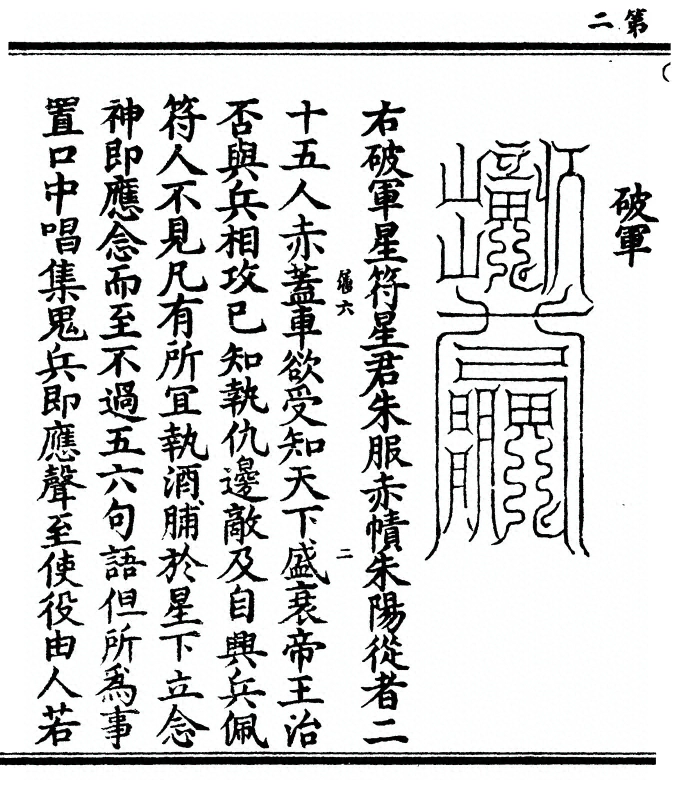 第二
破軍
右破軍星符星君朱服赤幘朱陽從者二
十五人赤蓋車欲受知天下盛衰帝王治
否與兵相攻已知執仇邊敵及自興兵佩
符人不見凡有所冝執酒脯於星下立念
神即應念而至不過五六句語但所爲事
置口中唱集鬼兵即應聲至使役由人若
六
二